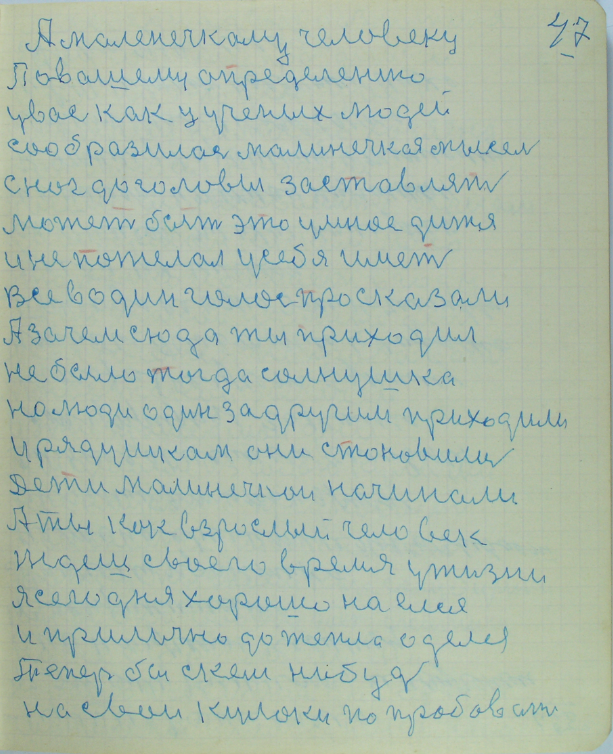 47
А маленечкаму человеку
Повашему определению
увас как у ученых людей
сообразилас малинечкая мысел
сног доголовы заставлят
может быт это умное дитя
и не пожелал усебя имет
все водин голос просказали
А зачем сюда ты приходил
не было тогда солнушка
но люди один за другим приходили
и рядушкам они становили
Дети малинечкои начинали
А ты как взрослый человек
ждеш своего время ужизни
я сегодня хорошо наелся
и прилично до тепла оделся
Тепер бы скем нибуд
на свои кулоки попробовали